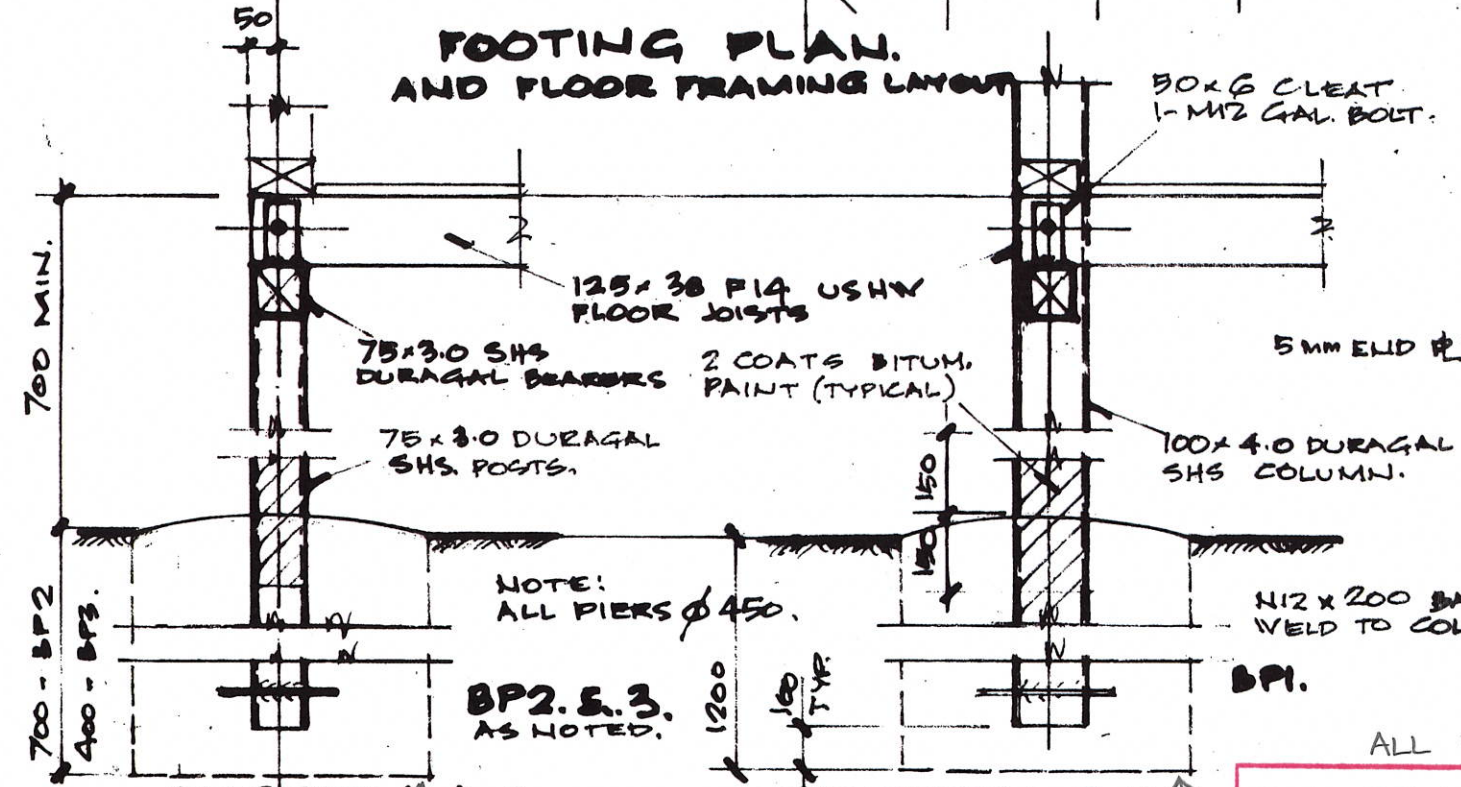 50
FOOTING PLAN.
AND FLOOR FRAMING LAYOUT
50x6 CLEAT
1-M12 GAL. BOLT.
700 MIN.
125x38 F14 USHW
FLOOR JOISTS
75x3.0 SHS
DURAGAL BEARERS
2 COATS BITUM.
PAINT (TYPICAL)
5mm END PL
75x3.0 DURAGAL
SHS. POSTS.
100x4.0 DURAGAL
SHS COLUMN.
150
150
NOTE:
ALL PIERS Ø450.
N12 x 200
WELD TO
700 - BP2
400 - BP3.
BP2. & 3.
AS NOTED.
1200
TYP.
BP1.
ALL